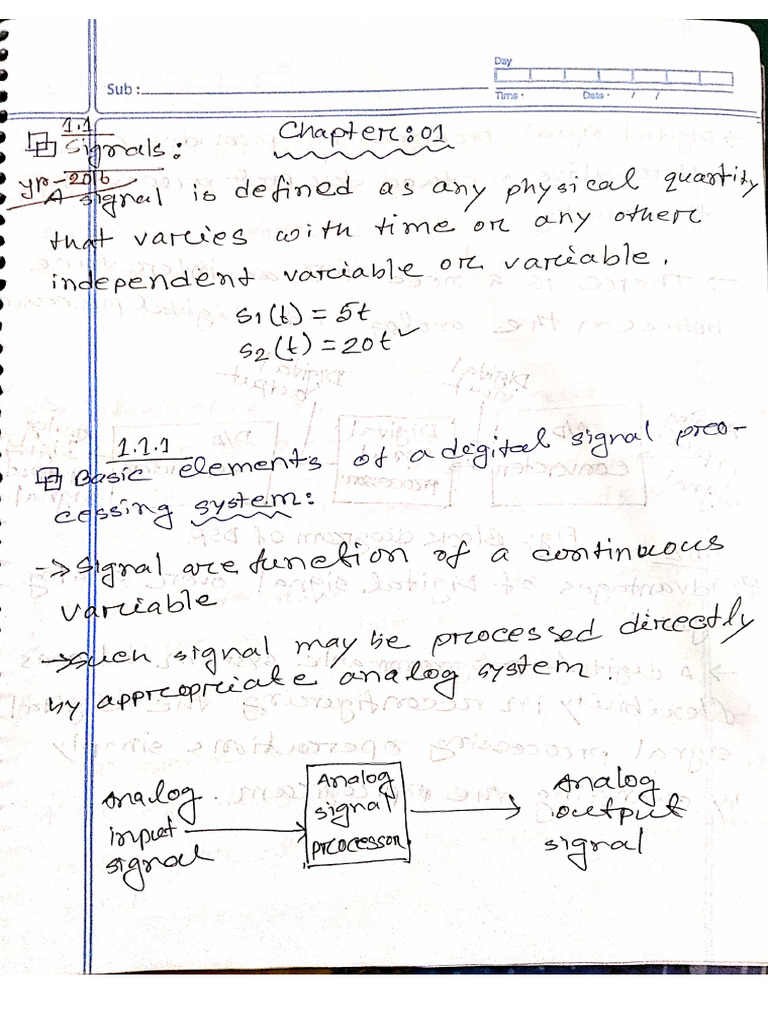 Day
Sub :
Time · Date · / /
Chapter : 01
1.1
Signals :
yr-2016
A signal is defined as any physical quantity
that varies with time or any other
independent variable or variable.
s1(t) = 5t
s2(t) = 20t ✓
1.1.1
Basic elements of a digital signal pro-
cessing system :
-> Signal are function of a continuous
variable
-> Such signal may be processed directly
by appropriate analog system.
Analog Analog Analog
input signal output
signal processor signal